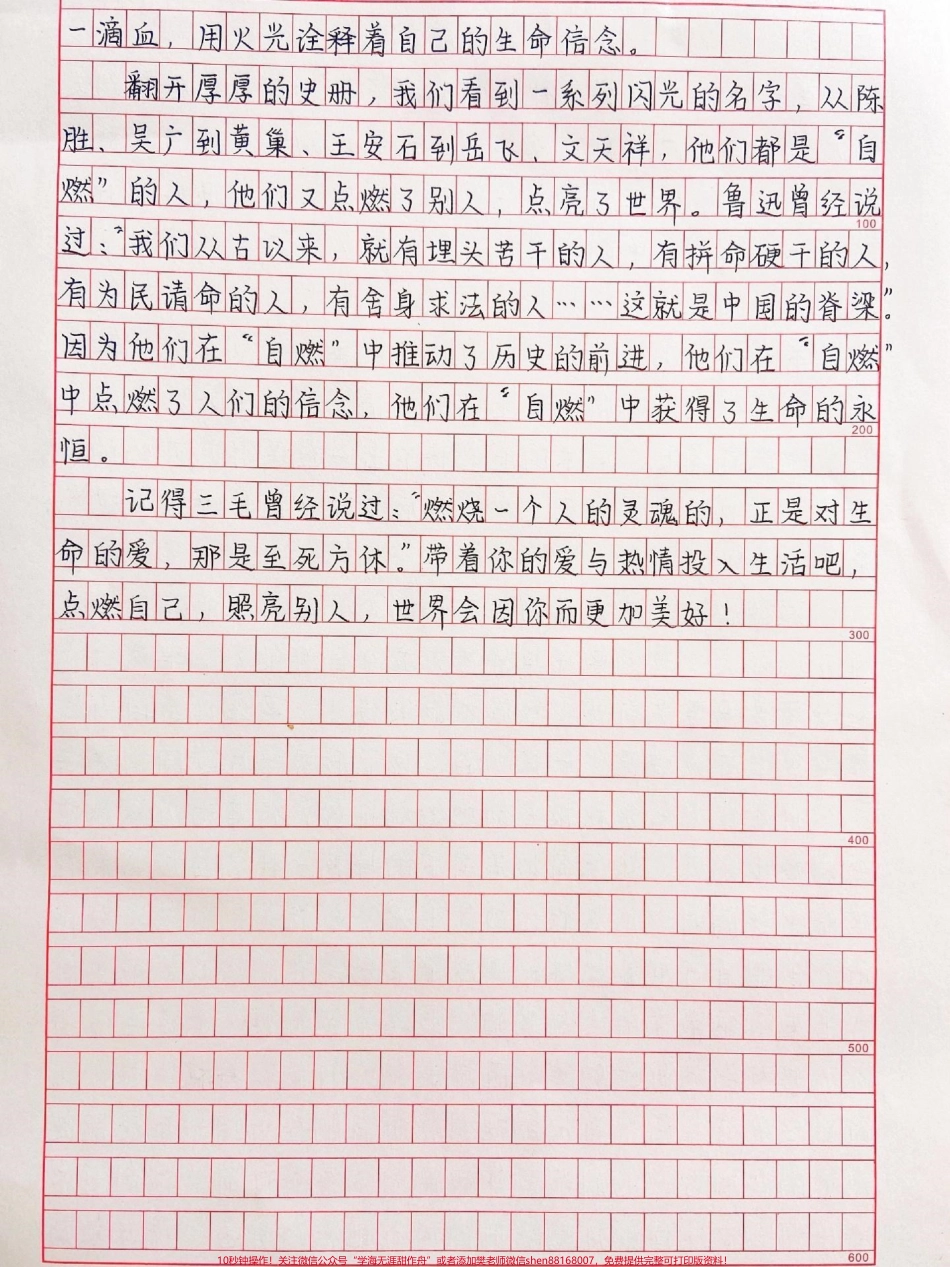 一滴血，用火光诠释着自己的生命信念。
翻开厚厚的史册，我们看到一系列闪光的名字，从陈
胜、吴广到黄巢、王安石到岳飞、文天祥，他们都是“自
燃”的人，他们又点燃了别人，点亮了世界。鲁迅曾经说
100
过：“我们从古以来，就有埋头苦干的人，有拼命硬干的人，
有为民请命的人，有舍身求法的人……这就是中国的脊梁”。
因为他们在“自燃”中推动了历史的前进，他们在“自燃”
中点燃了人们的信念，他们在“自燃”中获得了生命的永
200
恒。
记得三毛曾经说过：“燃烧一个人的灵魂的，正是对生
命的爱，那是至死方休。”带着你的爱与热情投入生活吧，
点燃自己，照亮别人，世界会因你而更加美好！
300
400
500
600
10秒钟操作！关注微信公众号“学海无涯甜作舟”或者添加樊老师微信shen88168007，免费提供完整可打印版资料！